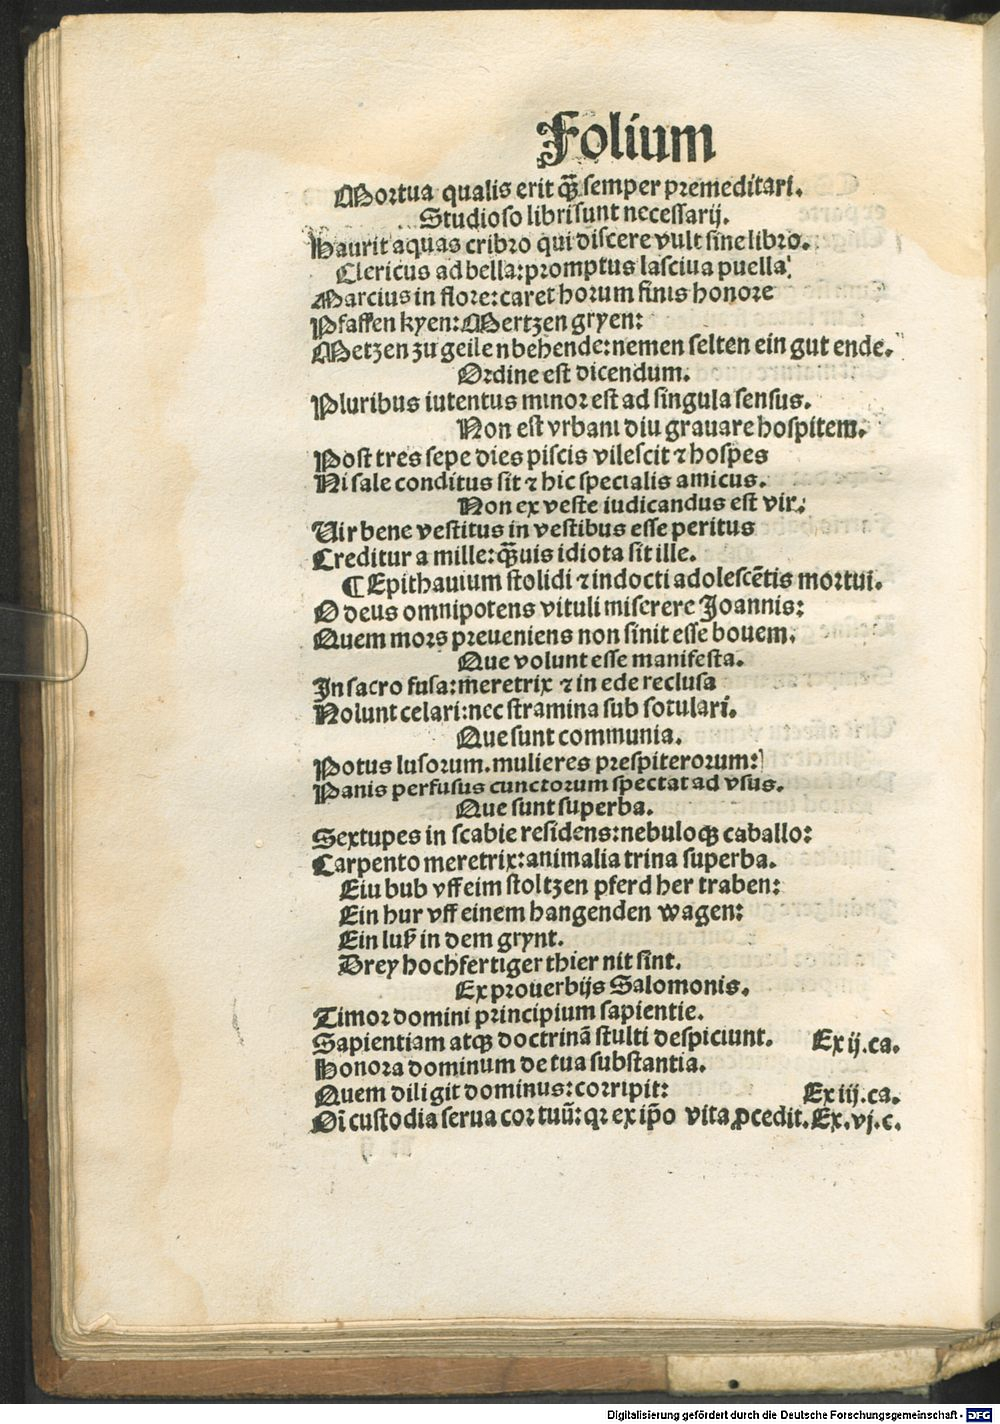 Folium
Mortua qualis erit qꝫ̃ semper premeditari.
Studioso libri sunt necessarij.
Haurit aquas cribro qui discere vult sine libro.
Clericus ad bella: promptus lasciua puella:
Marcius in flore: caret horum finis honore
Pfaffen kyen: Mertzen gryen:
Metzen zu geilen behende: nemen selten ein gut ende.
Ordine est dicendum.
Pluribus iutentus minor est ad singula sensus.
Non est vrbani diu grauare hospitem.
Post tres sepe dies piscis vilescit ⁊ hospes
Ni sale conditus sit ⁊ hic specialis amicus.
Non ex veste iudicandus est vir.
Uir bene vestitus in vestibus esse peritus
Creditur a mille: qꝫ̃uis idiota sit ille.
¶ Epithauium stolidi ⁊ indocti adolescẽtis mortui.
O deus omnipotens vituli miserere Joannis:
Quem mors preueniens non sinit esse bouem.
Que volunt esse manifesta.
In sacro fusa: meretrix ⁊ in ede reclusa
Nolunt celari: nec stramina sub sotulari.
Que sunt communia.
Potus lusorum. mulieres prespiterorum:
Panis perfusus cunctorum spectat ad vsus.
Que sunt superba.
Sextupes in scabie residens: nebuloqꝫ caballo:
Carpento meretrix: animalia trina superba.
Eiu bub vff eim stoltzen pferd her traben:
Ein hur vff einem hangenden wagen:
Ein luß in dem grynt.
Drey hochfertiger thier nit sint.
Ex prouerbijs Salomonis.
Timor domini principium sapientie.
Sapientiam atqꝫ doctrinã stulti despiciunt. Ex ij. ca.
Honora dominum de tua substantia.
Quem diligit dominus: corripit: Ex iij. ca.
Oĩ custodia serua cor tuũ: qꝛ ex ip̃o vita ꝓcedit. Ex. vj. c.
Digitalisierung gefördert durch die Deutsche Forschungsgemeinschaft - DFG